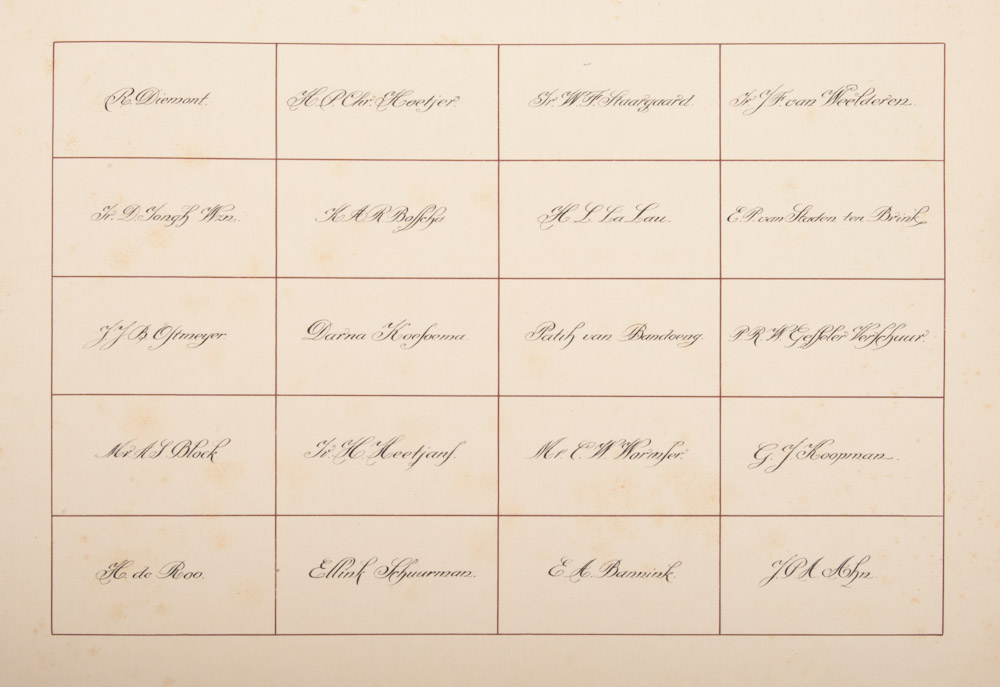 R. Diemont.
H. P. Chr. Hoetjer.
Ir. W. F. Staargaard.
Ir J. F. van Weelderen.
Ir. D. Jongh Wzn.
K A R Bosscha.
H. L. La Lau.
E. P. van Staden ten Brink.
J J B Ostmeyer.
Darna Koesoema.
Patih van Bandoeng.
P. R. W. Gesseler Verschuur.
Mr A S Block
Ir. H. Heetjans.
Mr. C. W. Wormser.
G. J. Koopman.
H. de Roo.
Ellink Schuurman.
E. A. Bannink.
J P A Ahn.